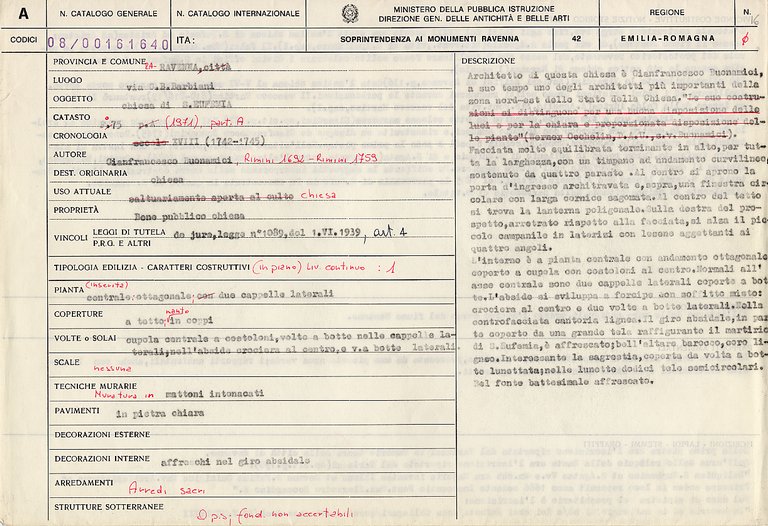 A
N. CATALOGO GENERALE
N. CATALOGO INTERNAZIONALE
MINISTERO DELLA PUBBLICA ISTRUZIONE
DIREZIONE GEN. DELLE ANTICHITÀ E BELLE ARTI
REGIONE
N.
16
CODICI
08/00161640
ITA:
SOPRINTENDENZA AI MONUMENTI RAVENNA
42
EMILIA-ROMAGNA
PROVINCIA E COMUNE RA- RAVENNA, città
LUOGO via G.B.Barbiani
OGGETTO chiesa di S.EUFEMIA
CATASTO F.75 p. (1971), part. A
CRONOLOGIA secolo XVIII (1742-1745)
AUTORE Gianfrancesco Buonamici, Rimini 1692 - Rimini 1759
DEST. ORIGINARIA chiesa
USO ATTUALE saltuariamente aperta al culto chiesa
PROPRIETÀ Bene pubblico chiesa
VINCOLI LEGGI DI TUTELA de jure, legge n°1089, del 1.VI.1939, art. 4
P.R.G. E ALTRI
TIPOLOGIA EDILIZIA - CARATTERI COSTRUTTIVI (in piano) liv. continuo : 1
PIANTA (inscritta)
centrale ottagonale, con due cappelle laterali
COPERTURE a tetto, manto in coppi
VOLTE o SOLAI cupola centrale a costoloni, volte a botte nelle cappelle la-
terali, nell'abside crociera al centro, e v.a botte laterali
SCALE nessuna
TECNICHE MURARIE Muratura in mattoni intonacati
PAVIMENTI in pietra chiara
DECORAZIONI ESTERNE
DECORAZIONI INTERNE affreschi nel giro absidale
ARREDAMENTI Arredi sacri
STRUTTURE SOTTERRANEE Ops; fond. non accertabili
DESCRIZIONE
Architetto di questa chiesa è Gianfrancesco Buonamici,
a suo tempo uno degli architetti più importanti della
zona nord-est dello Stato della Chiesa. "Le sue costru-
zioni si distinguono per una buona disposizione delle
luci e per la chiara e proporzionata disposizione del-
le piante" (Werner Oechslin, D.A.U., s.v. Buonamici).
Facciata molto equilibrata terminante in alto, per tut-
ta la larghezza, con un timpano ad andamento curvilineo,
sostenuto da quattro paraste. Al centro si aprono la
porta d'ingresso architravata e, sopra, una finestra cir-
colare con larga cornice sagomata. Al centro del tetto
si trova la lanterna poligonale. Sulla destra del pro-
spetto, arretrato rispetto alla facciata, si alza il pic-
colo campanile in laterizi con lesene aggettanti ai
quattro angoli.
L'interno è a pianta centrale con andamento ottagonale
coperto a cupola con costoloni al centro. Normali all'
asse centrale sono due cappelle laterali coperte a bot-
te. L'abside si sviluppa a forcipe con soffitto misto:
crociera al centro e due volte a botte laterali. Nella
controfacciata cantoria lignea. Il giro absidale, in par
te coperto da una grande tela raffigurante il martirio
di S.Eufemia, è affrescato; bell'altare barocco, coro li-
gneo. Interessante la sagrestia, coperta da volta a bot-
te lunettata; nelle lunette dodici tele semicircolari.
Bel fonte battesimale affrescato.